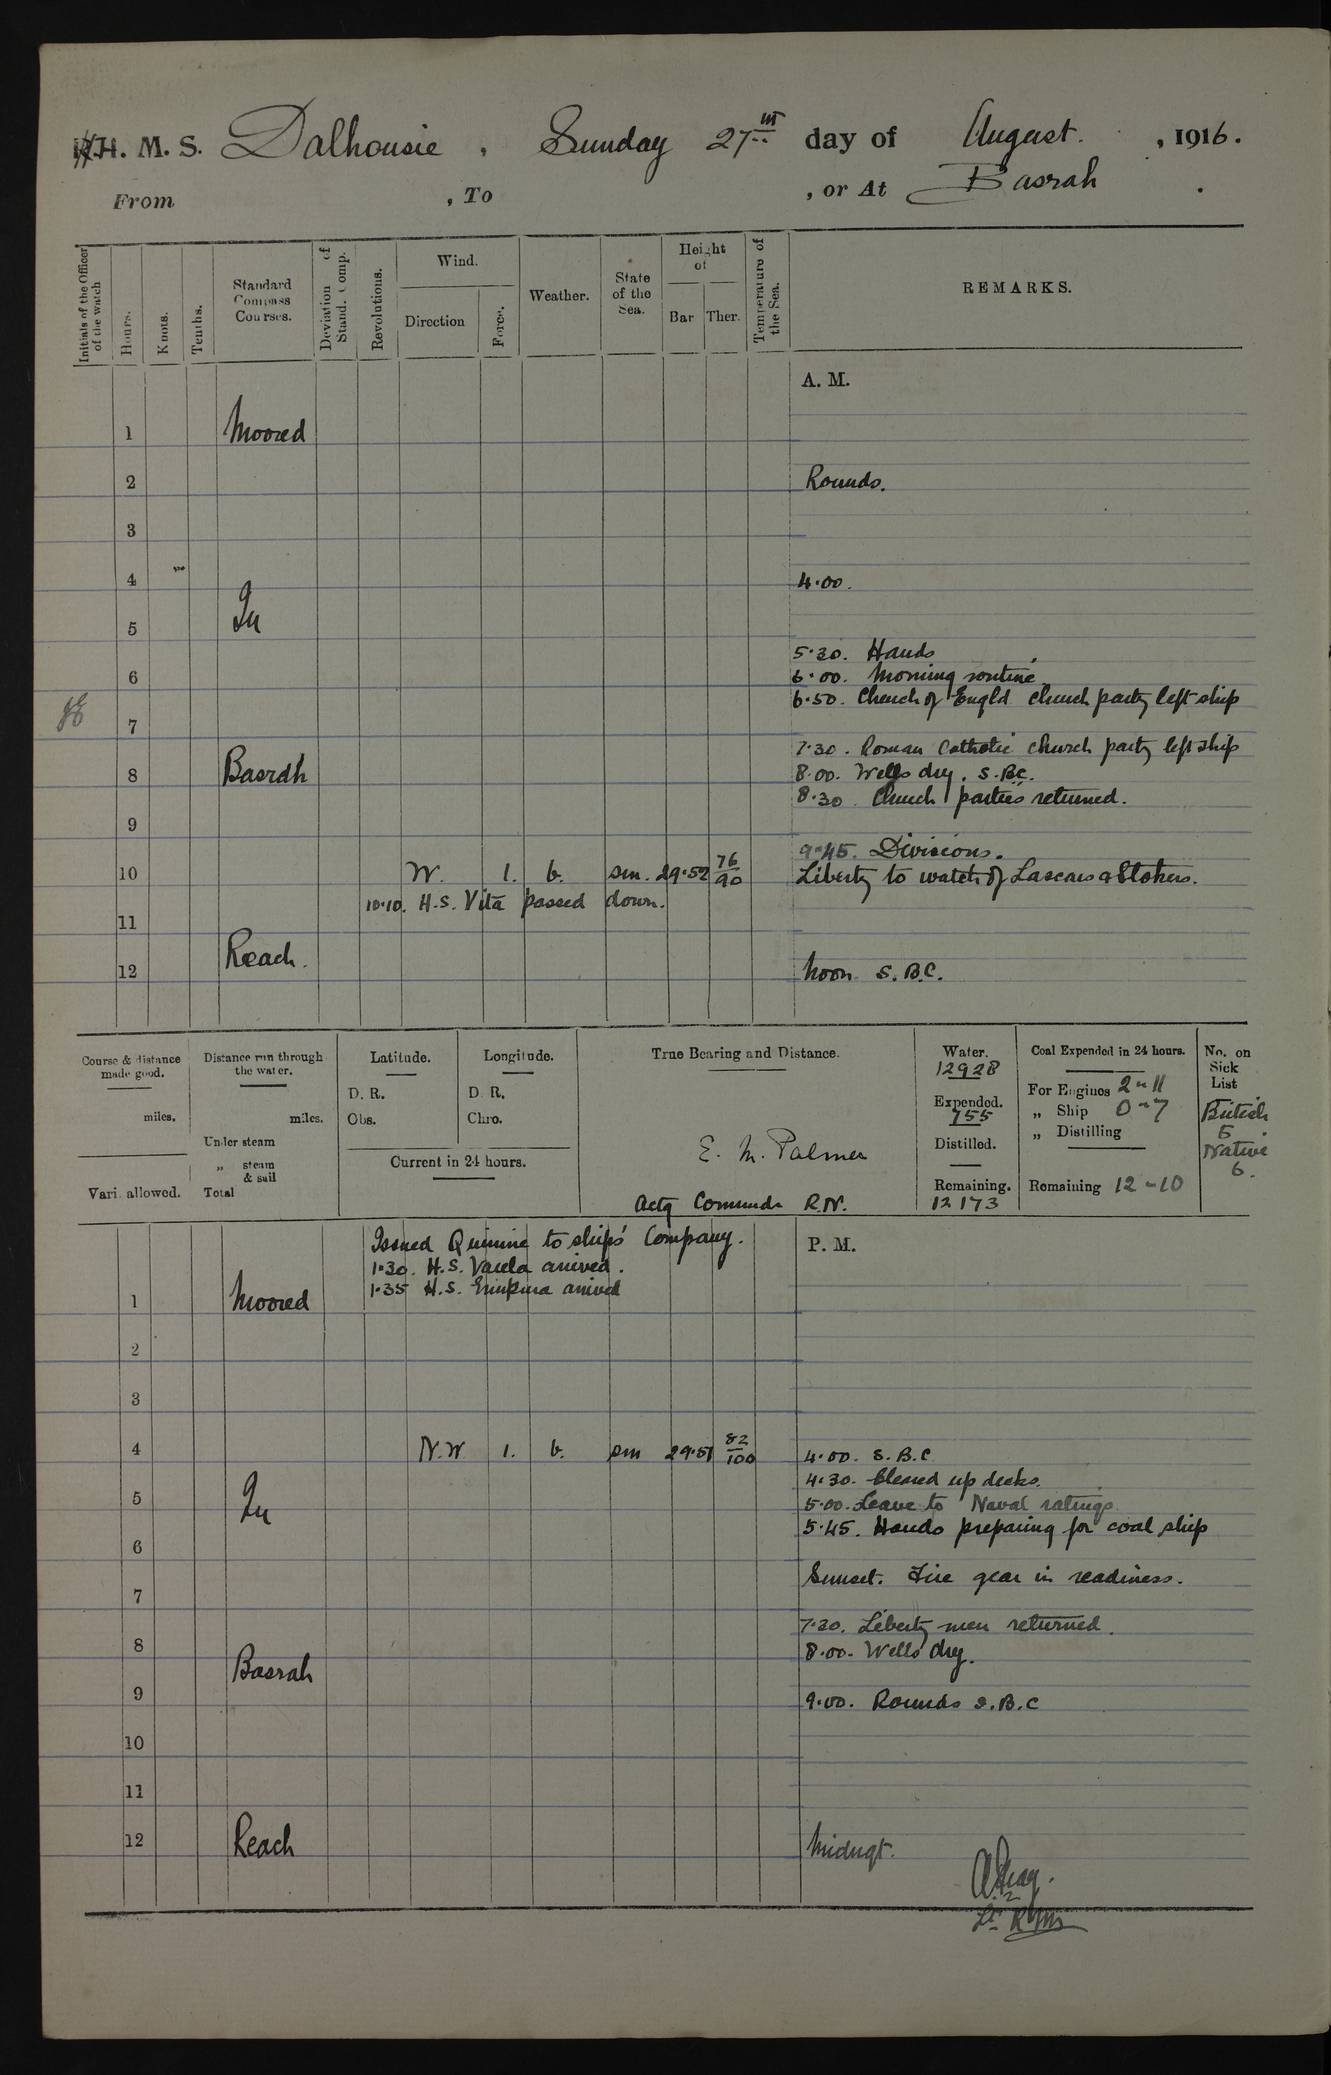 H. M. S. Dalhousie, Sunday 27th day of August, 1916.
From , To , or At Basrah.
Initials of the Officer of the Watch
Hours.
Knots.
Tenths.
Standard Compass Courses.
Deviation of Stand. Comp.
Revolutions.
Wind.
Direction
Force.
Weather.
State of the Sea.
Height of
Bar
Ther.
Temperature of the Sea.
REMARKS.
A. M.
1 Moored
2 Rounds.
3
4 4.00.
In
5
5.30. Hands
6 6.00. Morning routine
6.50. Church of Engld church party left ship
7
7.30. Roman Catholic church party left ship
8 Basrah 8.00. Wells dry. S.B.C.
8.30. Church parties returned.
9
9.45. Divisions.
10 W. 1. b. sm. 29.52 76/90 Liberty to watch of Lascars & Stokers.
10.10. H.S. Vita passed down.
11
Reach.
12 Noon S.B.C.
Course & distance made good.
miles.
Vari. allowed.
Distance run through the water.
miles.
Under steam
„ steam & sail
Total
Latitude.
D. R.
Obs.
Longitude.
D. R.
Chro.
Current in 24 hours.
True Bearing and Distance.
E. M. Palmer
Actg Commdr R.N.
Water.
12928
Expended.
755
Distilled.
Remaining.
12173
Coal Expended in 24 hours.
For Engines 2-11
„ Ship 0-7
„ Distilling
Remaining 12-10
No. on Sick List
British
5.
Native
6.
Issued Quinine to ships' Company.
P. M.
1.30. H.S. Varela arrived.
1.35 H.S. Erinpura arrived
1 Moored
2
3
4 N.W 1. b. sm 29.51 82/100 4.00. S.B.C
4.30. Cleared up decks.
5 In 5.00. Leave to Naval ratings
5.45. Hands preparing for coal ship
6
Sunset. Fire gear in readiness.
7
7.30. Liberty men returned.
8 8.00. Wells dry.
Basrah
9 9.00. Rounds S.B.C
10
11
12 Reach Midngt.